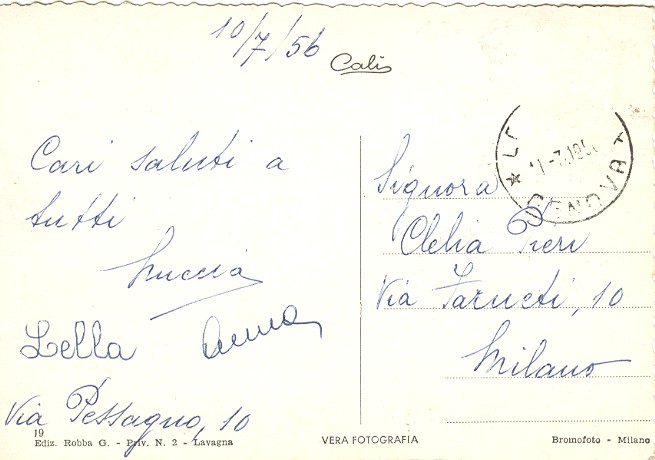 10/7/56
Calì
Cari saluti a
tutti
Nuccia
Lella Anna
Via Pessagno, 10
19
Ediz. Robba G. - Priv. N. 2 - Lavagna
VERA FOTOGRAFIA
GENOVA
Signora
Clelia Pieri
Via
10
Milano
Bromofoto - Milano